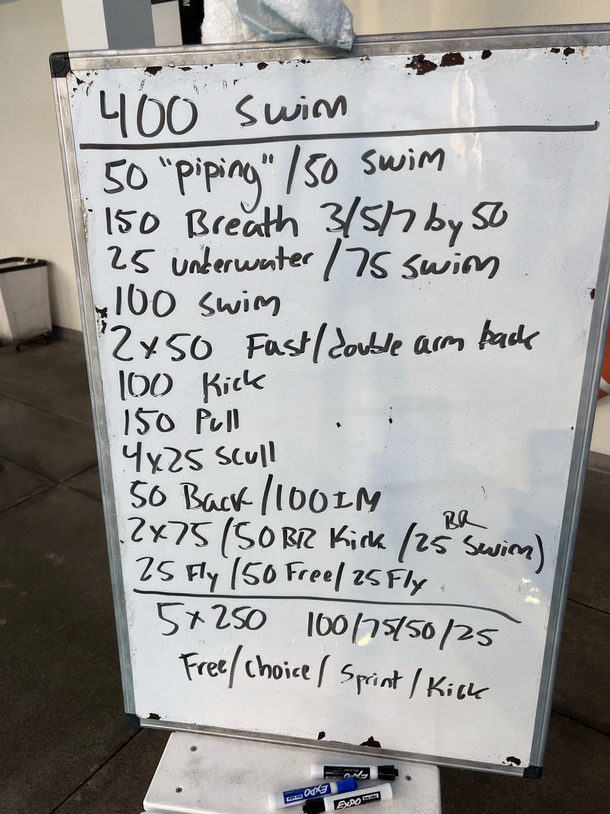 400 Swim
50 "piping" /50 swim
150 Breath 3/5/7 by 50
25 underwater /75 Swim
100 swim
2x50 Fast/double arm back
100 Kick
150 Pull
4x25 Scull
50 Back /100IM
2x75 /50 BR Kick /25 BR Swim)
25 Fly /50 Free/ 25 Fly
5x250 100/75/50/25
Free/Choice/ Sprint/Kick
EXPO
EXPO
EXPO